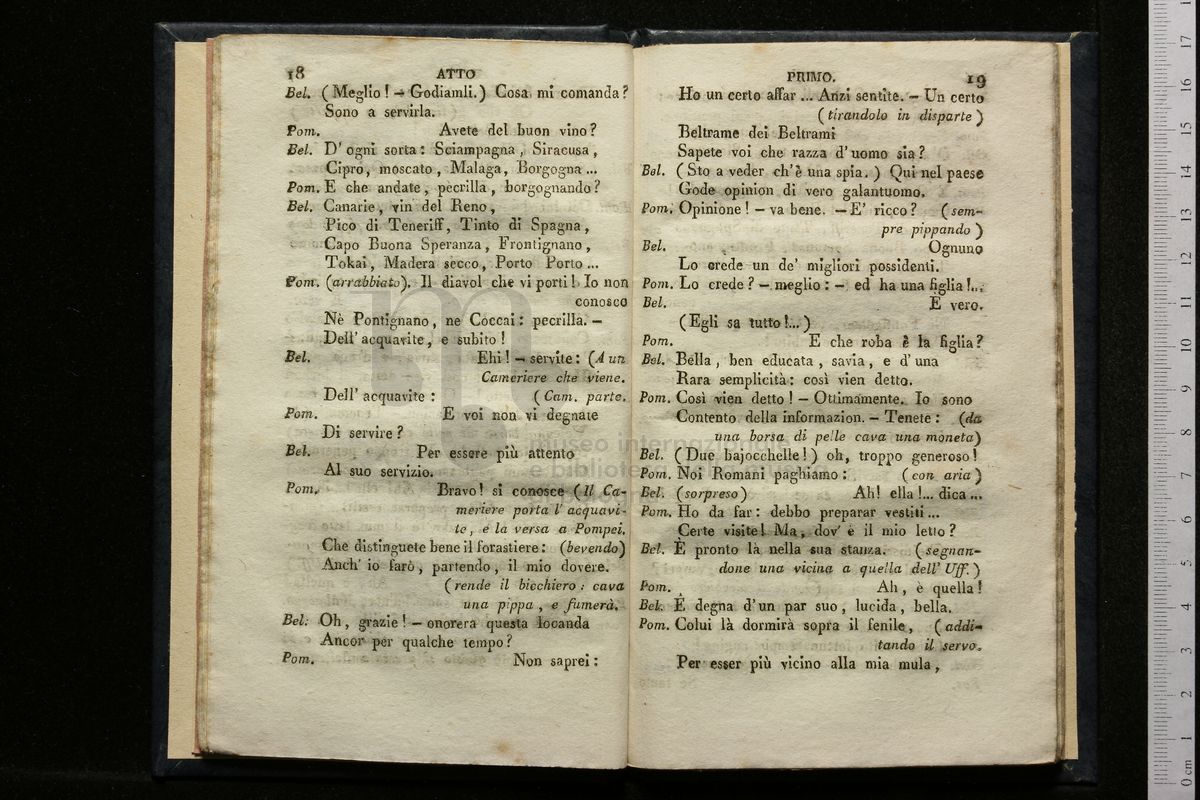 18 ATTO
Bel. (Meglio! — Godiamli.) Cosa mi comanda?
Sono a servirla.
Pom. Avete del buon vino?
Bel. D' ogni sorta: Sciampagna, Siracusa,
Cipro, moscato, Malaga, Borgogna...
Pom. E che andate, pecrilla, borgognando?
Bel. Canarie, vin del Reno,
Pico di Teneriff, Tinto di Spagna,
Capo Buona Speranza, Frontignano,
Tokai, Madera secco, Porto Porto...
Pom. (arrabbiato). Il diavol che vi porti! Io non
conosco
Nè Pontignano, ne Coccai: pecrilla. —
Dell' acquavite, e subito!
Bel. Ehi! — servite: (A un
Cameriere che viene.
Dell' acquavite: (Cam. parte.
Pom. E voi non vi degnate
Di servire?
Bel. Per essere più attento
Al suo servizio.
Pom. Bravo! si conosce (Il Ca-
meriere porta l' acquavi-
te, e la versa a Pompei.
Che distinguete bene il forastiere: (bevendo)
Anch' io farò, partendo, il mio dovere.
(rende il bicchiero: cava
una pippa, e fumerà.
Bel. Oh, grazie! — onorera questa locanda
Ancor per qualche tempo?
Pom. Non saprei:
PRIMO. 19
Ho un certo affar... Anzi sentite. — Un certo
(tirandolo in disparte)
Beltrame dei Beltrami
Sapete voi che razza d' uomo sia?
Bel. (Sto a veder ch'è una spia.) Qui nel paese
Gode opinion di vero galantuomo.
Pom. Opinione! — va bene. — E' ricco? (sem-
pre pippando)
Bel. Ognuno
Lo crede un de' migliori possidenti.
Pom. Lo crede? — meglio: — ed ha una figlia!...
Bel. È vero.
(Egli sa tutto!...)
Pom. E che roba è la figlia?
Bel. Bella, ben educata, savia, e d' una
Rara semplicità: così vien detto.
Pom. Così vien detto! — Ottimamente. Io sono
Contento della informazion. — Tenete: (da
una borsa di pelle cava una moneta)
Bel. (Due bajocchelle!) oh, troppo generoso!
Pom. Noi Romani paghiamo: (con aria)
Bel. (sorpreso) Ah! ella!... dica...
Pom. Ho da far: debbo preparar vestiti...
Certe visite! Ma, dov' è il mio letto?
Bel. È pronto là nella sua stanza. (segnan-
done una vicina a quella dell' Uff.)
Pom. Ah, è quella!
Bel. È degna d'un par suo, lucida, bella.
Pom. Colui là dormirà sopra il fenile, (addi-
tando il servo.
Per esser più vicino alla mia mula,
museo internazionale
e biblioteca della musica